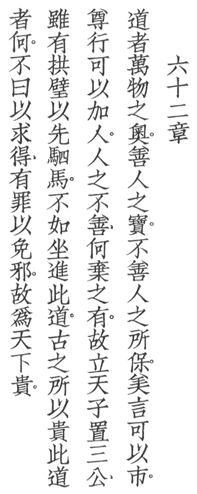 六十二章
道者萬物之奧。善人之寶。不善人之所保。美言可以市。
尊行可以加人。人之不善、何棄之有。故立天子置三公、
雖有拱璧以先駟馬。不如坐進此道。古之所以貴此道
者何。不曰以求得、有罪以免邪。故為天下貴。